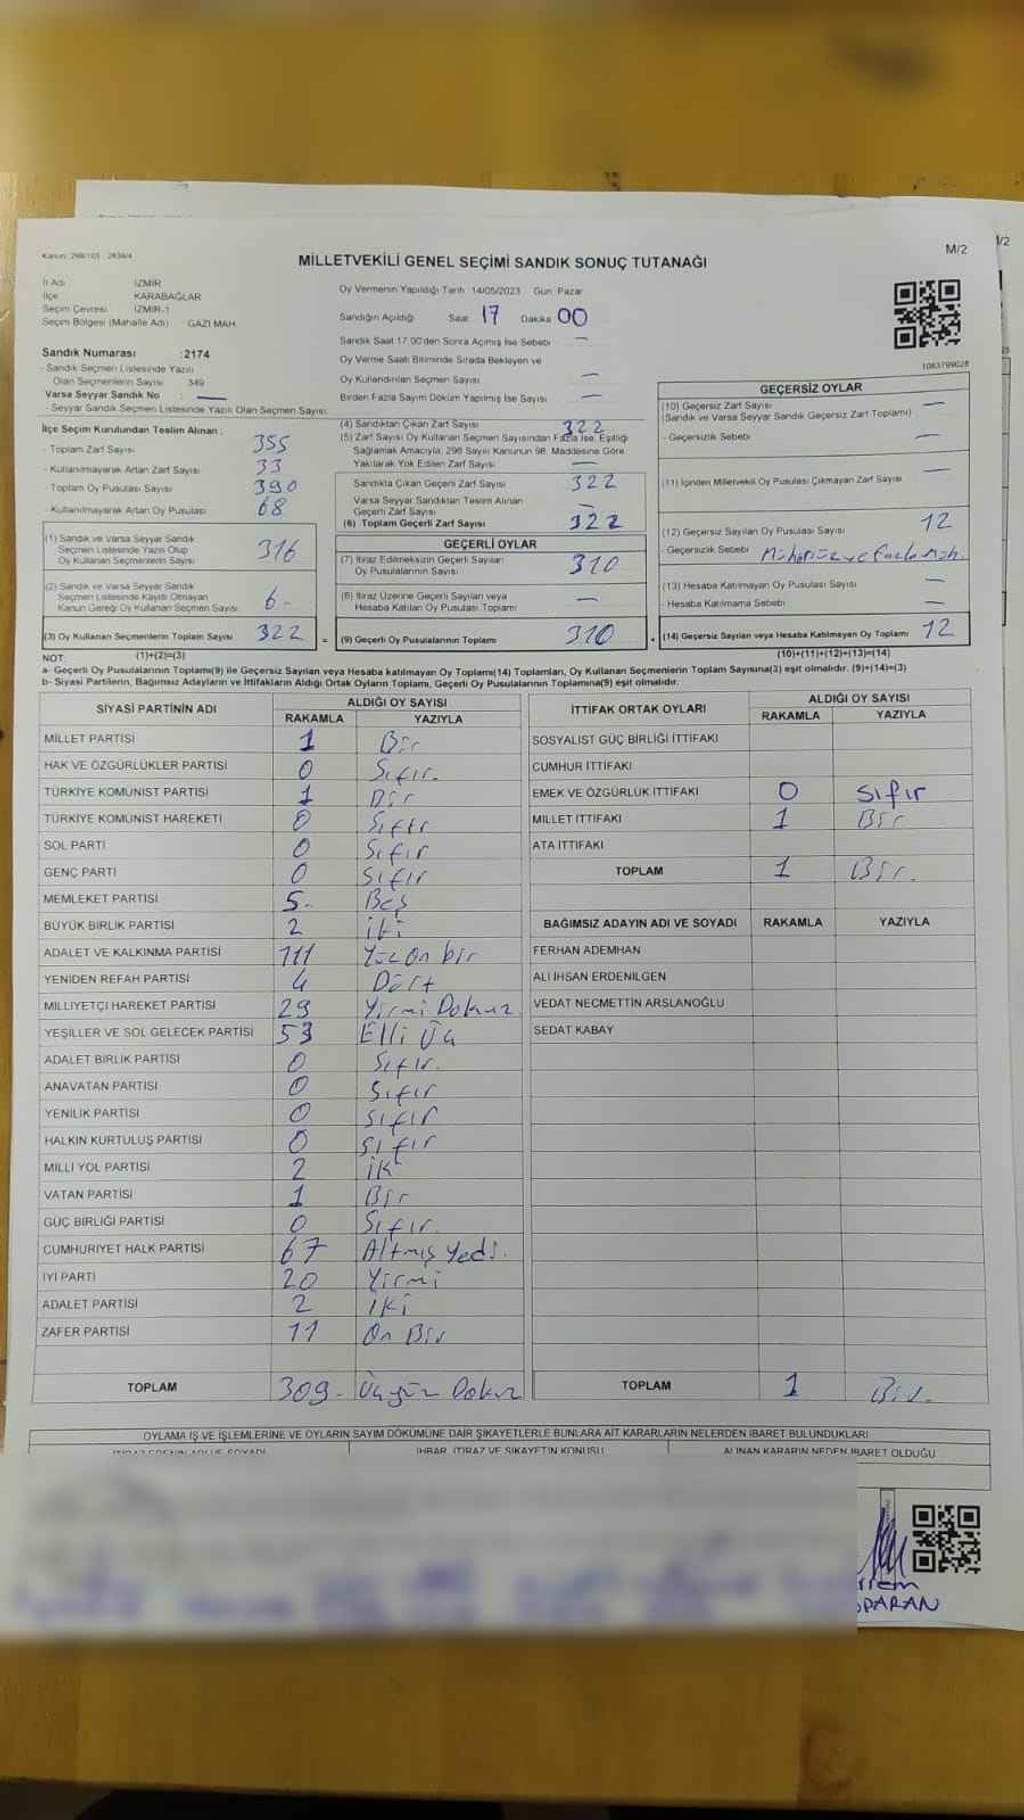 M/2
MİLLETVEKİLİ GENEL SEÇİMİ SANDIK SONUÇ TUTANAĞI
İl Adı İZMİR
İlçe KARABAĞLAR
Seçim Çevresi İZMİR-1
Seçim Bölgesi (Mahalle Adı) GAZİ MAH.
Sandık Numarası :2174
- Sandık Seçmen Listesinde Yazılı
Olan Seçmenlerin Sayısı 349
Varsa Seyyar Sandık No : —
- Seyyar Sandık Seçmen Listesinde Yazılı Olan Seçmen Sayısı:
İlçe Seçim Kurulundan Teslim Alınan ;
- Toplam Zarf Sayısı 355
- Kullanılmayarak Artan Zarf Sayısı 33
- Toplam Oy Pusulası Sayısı 390
- Kullanılmayarak Artan Oy Pusulası 68
(1) Sandık ve Varsa Seyyar Sandık
Seçmen Listesinde Yazılı Olup
Oy Kullanan Seçmenlerin Sayısı 316
(2) Sandık ve Varsa Seyyar Sandık
Seçmen Listesinde Kayıtlı Olmayan
Kanun Gereği Oy Kullanan Seçmen Sayısı 6-
(3) Oy Kullanan Seçmenlerin Toplam Sayısı 322 =
Oy Vermenin Yapıldığı Tarih 14/05/2023 Gün Pazar
Sandığın Açıldığı Saat 17 Dakika 00
Sandık Saat 17.00'den Sonra Açılmış İse Sebebi —
Oy Verme Saati Bitiminde Sırada Bekleyen ve
Oy Kullandırılan Seçmen Sayısı —
Birden Fazla Sayım Döküm Yapılmış İse Sayısı —
(4) Sandıktan Çıkan Zarf Sayısı 322
(5) Zarf Sayısı Oy Kullanan Seçmen Sayısından Fazla İse, Eşitliği
Sağlamak Amacıyla, 298 Sayılı Kanunun 98. Maddesine Göre
Yakılarak Yok Edilen Zarf Sayısı —
Sandıkta Çıkan Geçerli Zarf Sayısı 322
Varsa Seyyar Sandıktan Teslim Alınan
Geçerli Zarf Sayısı —
(6) Toplam Geçerli Zarf Sayısı 322
GEÇERLİ OYLAR
(7) İtiraz Edilmeksizin Geçerli Sayılan
Oy Pusulalarının Sayısı 310
(8) İtiraz Üzerine Geçerli Sayılan veya
Hesaba Katılan Oy Pusulası Toplamı —
(9) Geçerli Oy Pusulalarının Toplamı 310 +
1083799028
GEÇERSİZ OYLAR
(10) Geçersiz Zarf Sayısı —
(Sandık ve Varsa Seyyar Sandık Geçersiz Zarf Toplamı)
- Geçersizlik Sebebi —
(11) İçinden Milletvekili Oy Pusulası Çıkmayan Zarf Sayısı —
(12) Geçersiz Sayılan Oy Pusulası Sayısı 12
- Geçersizlik Sebebi Mühürsüz ve fazla müh.
(13) Hesaba Katılmayan Oy Pusulası Sayısı —
- Hesaba Katılmama Sebebi —
(14) Geçersiz Sayılan veya Hesaba Katılmayan Oy Toplamı 12
NOT: (1)+(2)=(3) (10)+(11)+(12)+(13)=(14)
a- Geçerli Oy Pusulalarının Toplamı(9) ile Geçersiz Sayılan veya Hesaba katılmayan Oy Toplamı(14) Toplamları, Oy Kullanan Seçmenlerin Toplam Sayısına(3) eşit olmalıdır. (9)+(14)=(3)
b- Siyasi Partilerin, Bağımsız Adayların ve İttifakların Aldığı Ortak Oyların Toplamı, Geçerli Oy Pusulalarının Toplamına(9) eşit olmalıdır.
SİYASİ PARTİNİN ADI ALDIĞI OY SAYISI
RAKAMLA YAZIYLA
MİLLET PARTİSİ 1 Bir
HAK VE ÖZGÜRLÜKLER PARTİSİ 0 Sıfır.
TÜRKİYE KOMÜNİST PARTİSİ 1 Bir
TÜRKİYE KOMÜNİST HAREKETİ 0 Sıfır
SOL PARTİ 0 Sıfır
GENÇ PARTİ 0 Sıfır
MEMLEKET PARTİSİ 5- Beş
BÜYÜK BİRLİK PARTİSİ 2 iki
ADALET VE KALKINMA PARTİSİ 111 Yüz On bir
YENİDEN REFAH PARTİSİ 4 Dört
MİLLİYETÇİ HAREKET PARTİSİ 29 Yirmi Dokuz
YEŞİLLER VE SOL GELECEK PARTİSİ 53 Elli Üç
ADALET BİRLİK PARTİSİ 0 Sıfır.
ANAVATAN PARTİSİ 0 Sıfır
YENİLİK PARTİSİ 0 Sıfır
HALKIN KURTULUŞ PARTİSİ 0 Sıfır
MİLLİ YOL PARTİSİ 2 iki
VATAN PARTİSİ 1 Bir
GÜÇ BİRLİĞİ PARTİSİ 0 Sıfır
CUMHURİYET HALK PARTİSİ 67 Altmış Yedi.
İYİ PARTİ 20 Yirmi
ADALET PARTİSİ 2 iki
ZAFER PARTİSİ 11 On Bir
TOPLAM 309- Üçyüz Dokuz
İTTİFAK ORTAK OYLARI ALDIĞI OY SAYISI
RAKAMLA YAZIYLA
SOSYALİST GÜÇ BİRLİĞİ İTTİFAKI
CUMHUR İTTİFAKI
EMEK VE ÖZGÜRLÜK İTTİFAKI 0 Sıfır
MİLLET İTTİFAKI 1 Bir
ATA İTTİFAKI
TOPLAM 1 Bir.
BAĞIMSIZ ADAYIN ADI VE SOYADI RAKAMLA YAZIYLA
FERHAN ADEMHAN
ALİ İHSAN ERDENİLGEN
VEDAT NECMETTİN ARSLANOĞLU
SEDAT KABAY
TOPLAM 1 Bir.
OYLAMA İŞ VE İŞLEMLERİNE VE OYLARIN SAYIM DÖKÜMÜNE DAİR ŞİKAYETLERLE BUNLARA AİT KARARLARIN NELERDEN İBARET BULUNDUKLARI
İTİRAZ EDENİN ADI VE SOYADI İHBAR, İTİRAZ VE ŞİKAYETİN KONUSU ALINAN KARARIN NEDEN İBARET OLDUĞU